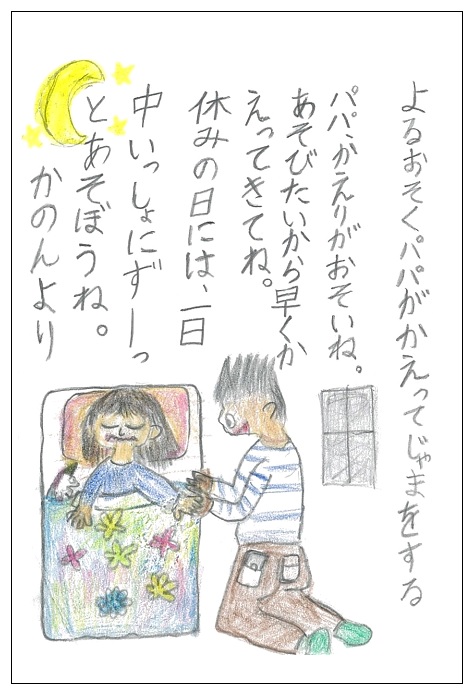 よるおそくパパがかえってじゃまをする
パパ、かえりがおそいね。
あそびたいから早くか
えってきてね。
休みの日には、一日
中いっしょにずーっ
とあそぼうね。
かのんより